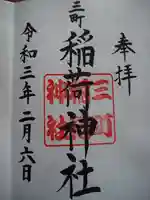 奉拝
三町
稲荷神社
三町
稲荷
神社
令和三年二月六日